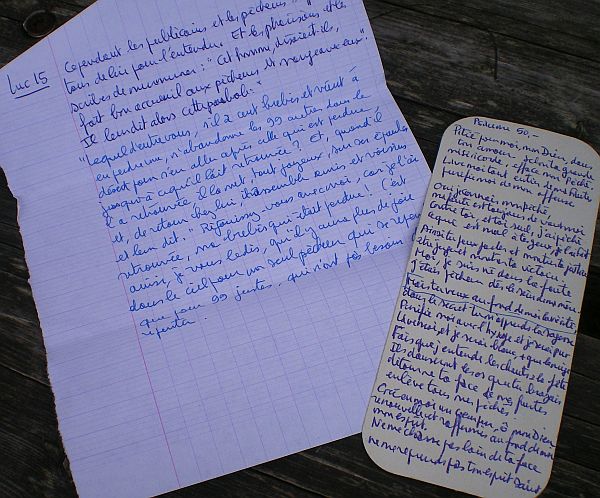 Luc 15
Cependant les publicains et les pécheurs
tous de lui pour l'entendre. Et les pharisiens et les
scribes de murmurer : "Cet homme, disaient-ils,
fait bon accueil aux pécheurs et mange avec eux".
Il leur dit alors cette parabole :
"Lequel d'entre vous, s'il a cent brebis et vient à
en perdre une, n'abandonne les 99 autres dans le
désert pour s'en aller après celle qui est perdue,
jusqu'à ce qu'il l'ait retrouvée ? Et, quand il
l'a retrouvée, il la met, tout joyeux, sur ses épaules
et, de retour chez lui, il assemble amis et voisins
et leur dit : "Réjouissez vous avec moi, car je l'ai
retrouvée, ma brebis qui était perdue ! C'est
ainsi, je vous le dis, qu'il y aura plus de joie
dans le ciel pour un seul pécheur qui se repent
que pour 99 justes, qui n'ont pas besoin
repentir.
Psaume 50.-
Pitié pour moi, mon Dieu, dans
ton amour, selon ta grande
miséricorde, efface mon péché.
Lave moi tout entier de ma faute
purifie moi de mon offense
Oui je connais mon péché,
ma faute est toujours devant moi
Contre toi, et toi seul, j'ai péché
ce qui est mal à tes yeux je l'ai fait
Ainsi tu peux parler et montrer ta justice
être juge et montrer ta victoire
Moi, je suis né dans la faute
j'étais pécheur dès le sein de ma mère
Mais tu veux au fond de moi la vérité
dans le secret tu m'apprends la sagesse
Purifie moi avec l'hysope et je serai pur
Lave moi et je serai blanc + que la neige
Fais que j'entende les chants et la fête
Ils danseront les os que tu broyais
détourne ta face de mes fautes
enlève tous mes péchés
Crée en moi un cœur pur, ô mon Dieu
renouvelle et raffermis au fond de moi
mon esprit
Ne me chasse pas loin de ta face
ne me reprends pas ton esprit saint